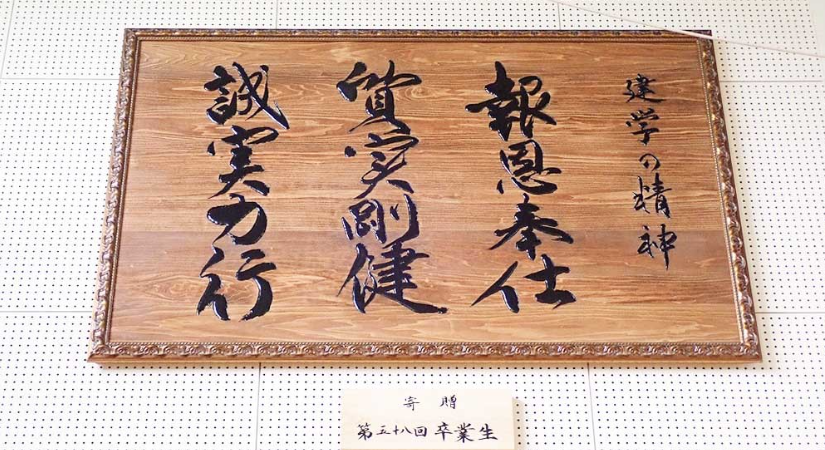 建学の精神
報恩奉仕
質実剛健
誠実力行
寄贈
第五十八回卒業生